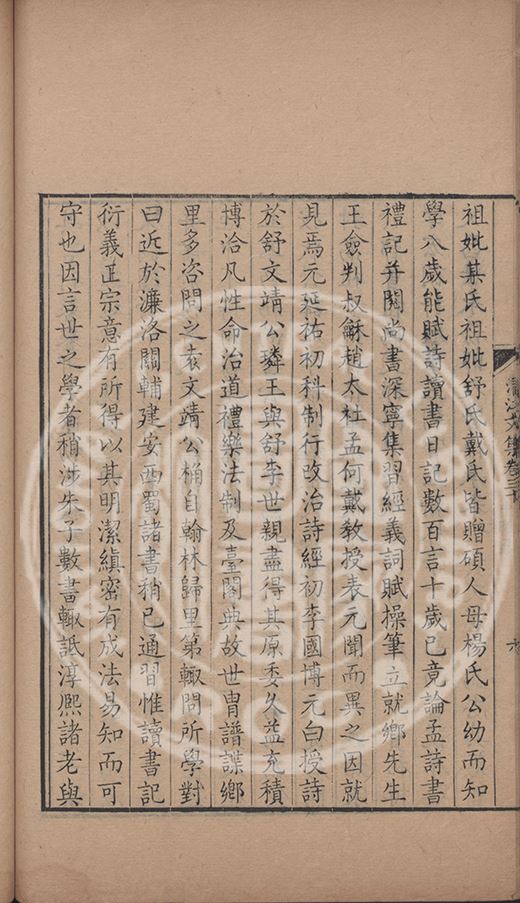 祖妣某氏祖妣舒氏戴氏皆贈碩人母楊氏公幼而知
學八歲能賦詩讀書日記數百言十歲已竟論孟詩書
禮記并閱尚書深寧集習經義詞賦操筆立就鄉先生
王僉判叔龢趙太社孟何戴教授表元聞而異之因就
見焉元延祐初科制行改治詩經初李國博元白授詩
於舒文靖公璘王與舒李世親盡得其原委久益充積
博洽凡性命治道禮樂法制及臺閣典故世胄譜諜鄉
里多咨問之袁文靖公桷自翰林歸里第輙問所學對
曰近於濂洛關輔建安西蜀諸書稍已通習惟讀書記
衍義正宗意有所得以其明潔縝密有成法易知而可
守也因言世之學者稍涉朱子數書輙詆淳熙諸老與